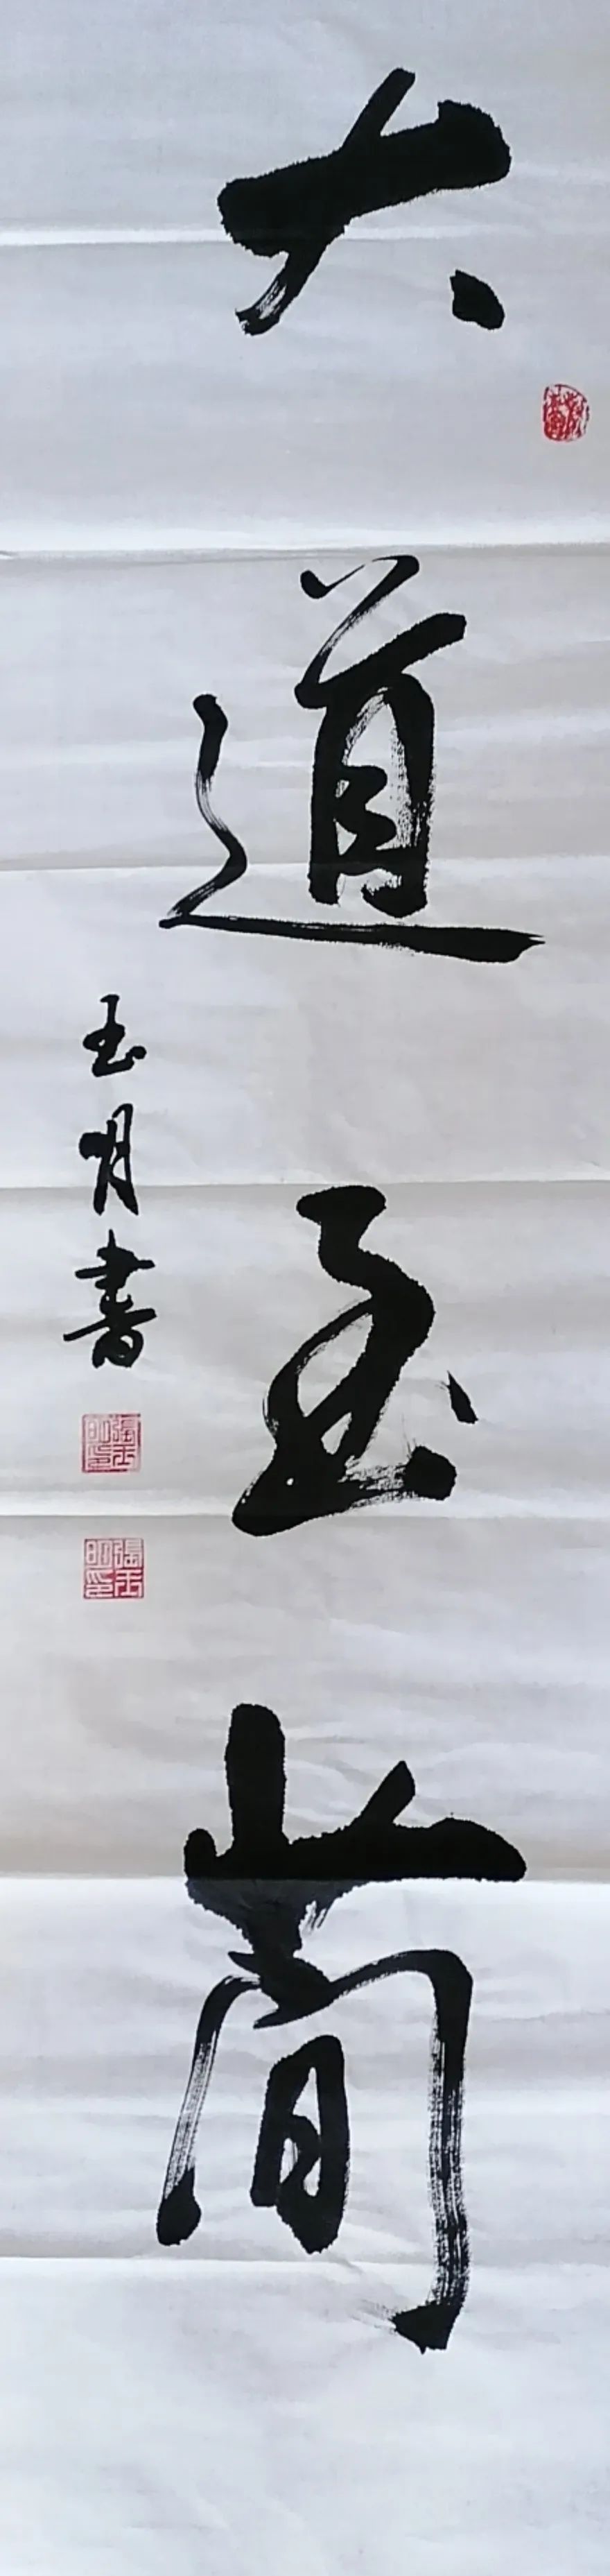 大道至简
玉明書
張玉明印
張玉明印